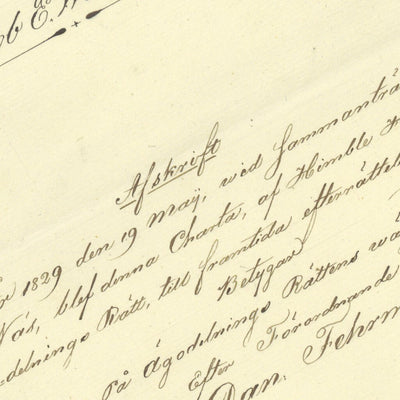 Afskrift
1829 den 19 Maij, vid Sammanträ
Näs, blef denna Charta, af Himble H
delnings Rätt, till framtida efterrättel
Betygar
På Ägodelnings Rättens wä
Efter Förordnande
Dan. Fehrm